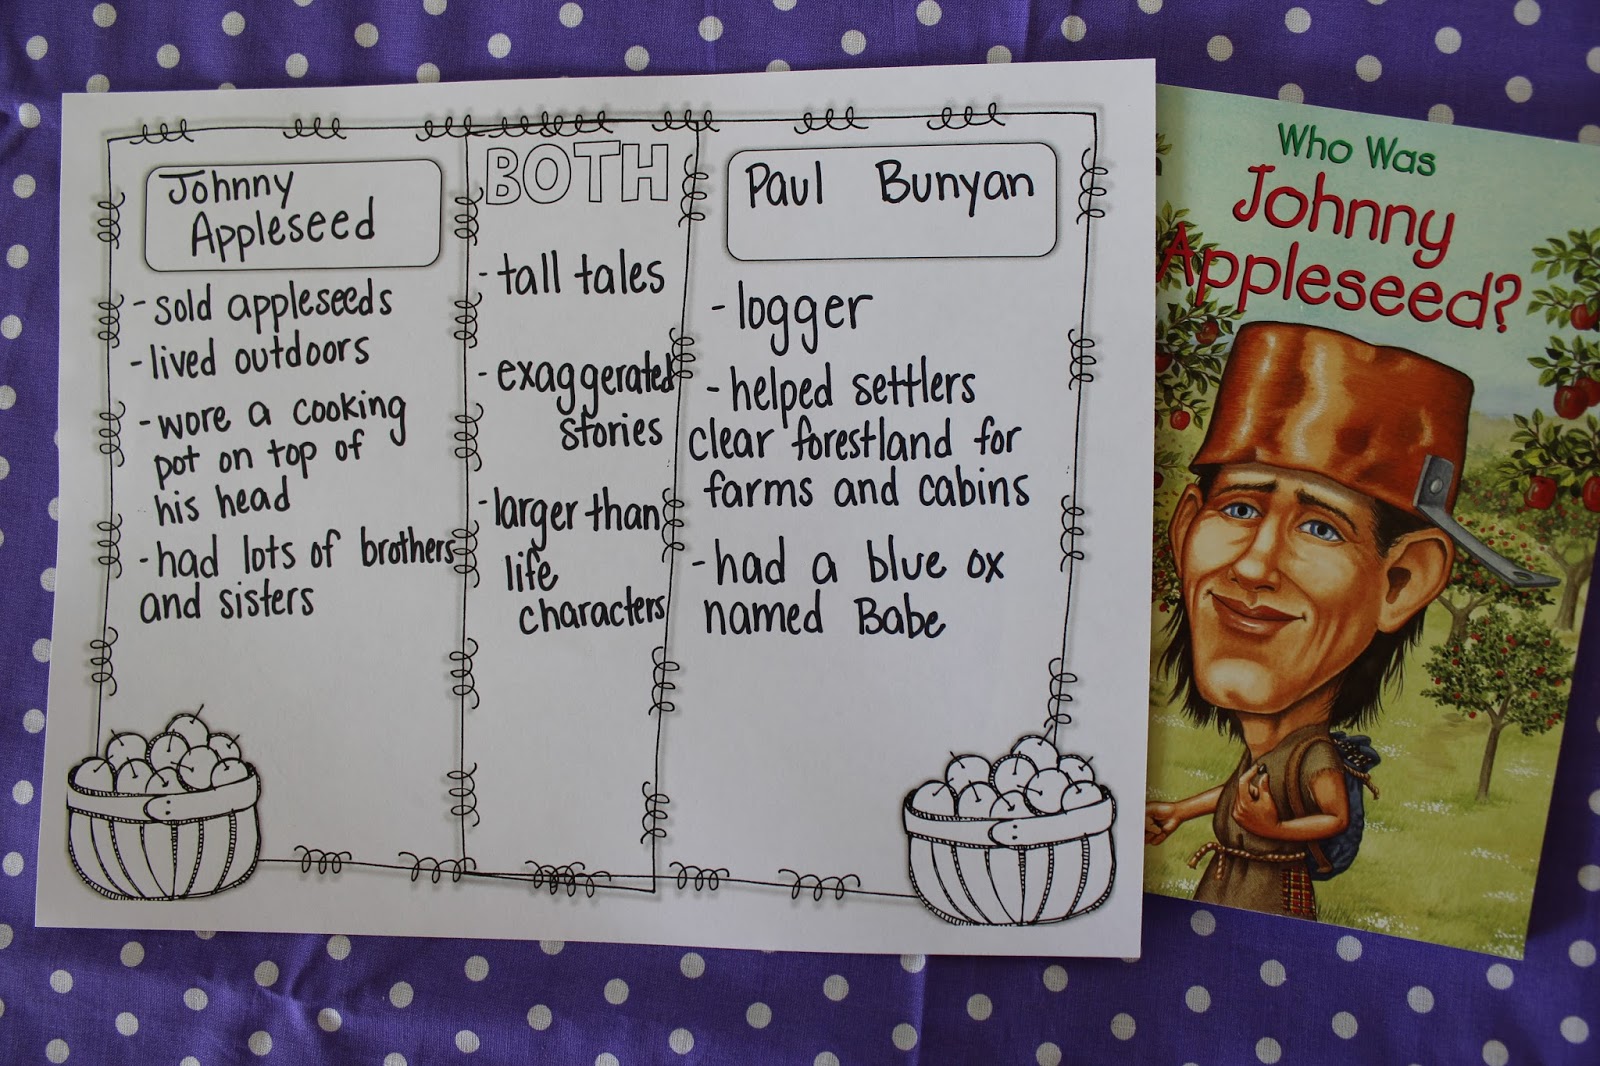 Johnny
Appleseed
- sold appleseeds
- lived outdoors
- wore a cooking
pot on top of
his head
- had lots of brothers
and sisters
BOTH
- tall tales
- exaggerated
stories
- larger than
life
characters
Paul Bunyan
- logger
- helped settlers
clear forestland for
farms and cabins
- had a blue ox
named Babe
Who Was
Johnny
Appleseed?